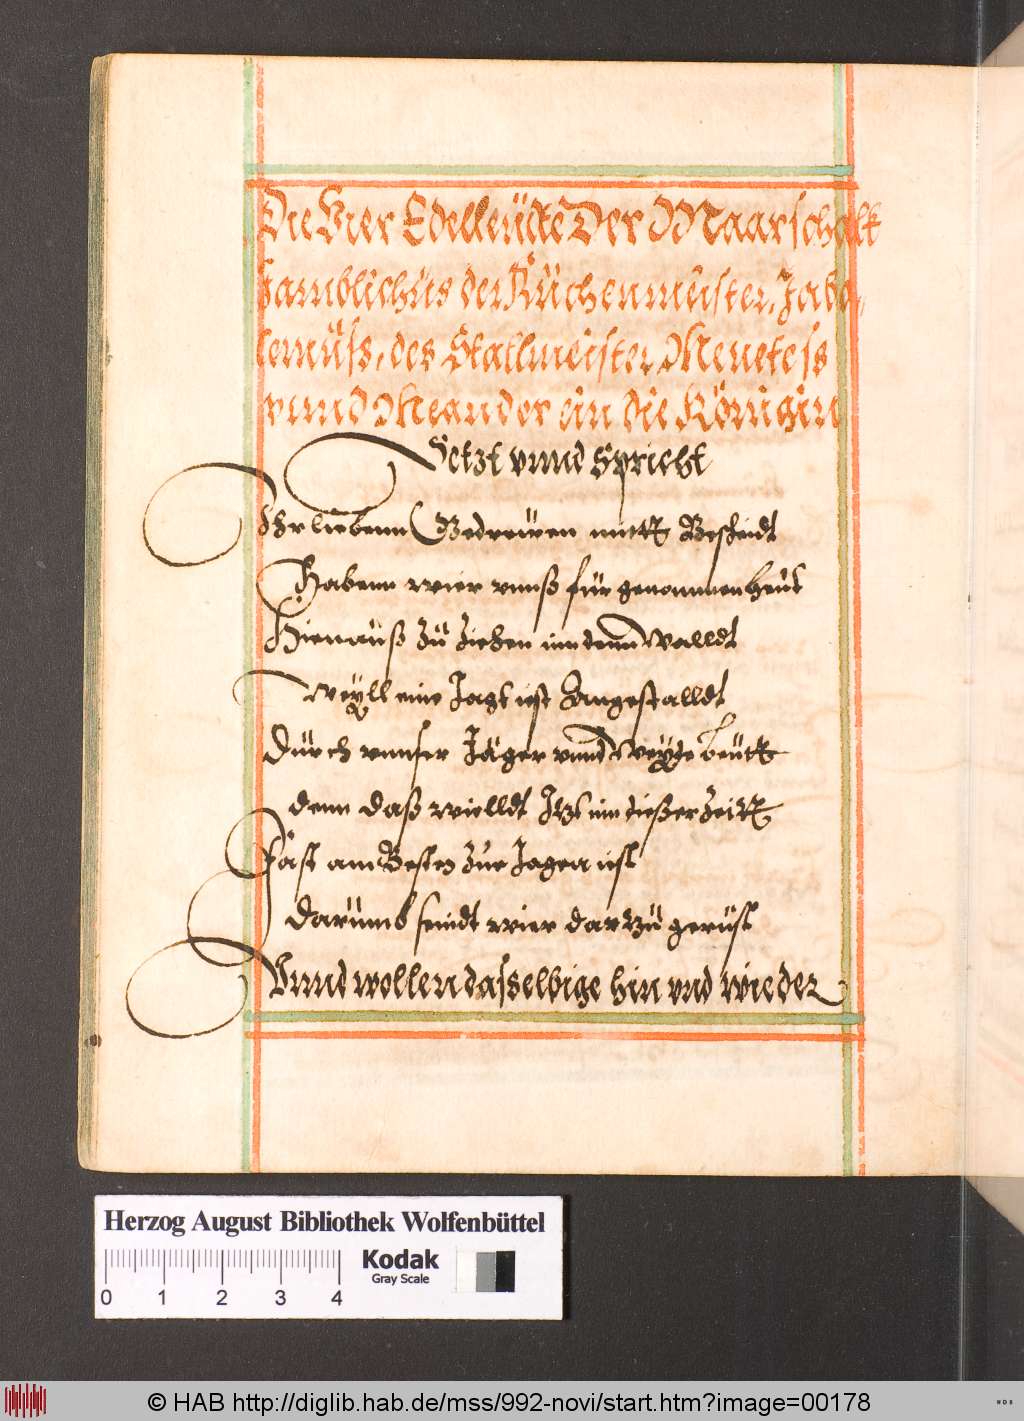 Die Vier Edelleütte Der Maarschalk
Jamblichüs der Küchenmeister, Jaba,,
lemüss, des Stallmeister, Menetess
vnnd Meander ein die Königin
Setzt vnnd Spricht
Ihr liebenn Gedrewen mitt Bescheidt
Habenn wier vnnß für genommen heut
Hienauß zu ziehen inn denn Walldt
Weyll eine Jagt ist Angestalldt
Durch vnnser Jäger vnnd Weydeleutt
denn daß wielldt Jtzt inn dießer Zeitt
Fast am Besten zur Jagen ist
Darumb seindt wier dar zu gerüst
Vnnd wollen dasselbige hin vnd wieder
Herzog August Bibliothek Wolfenbüttel
Kodak
Gray Scale
0 1 2 3 4
© HAB http://diglib.hab.de/mss/992-novi/start.htm?image=00178